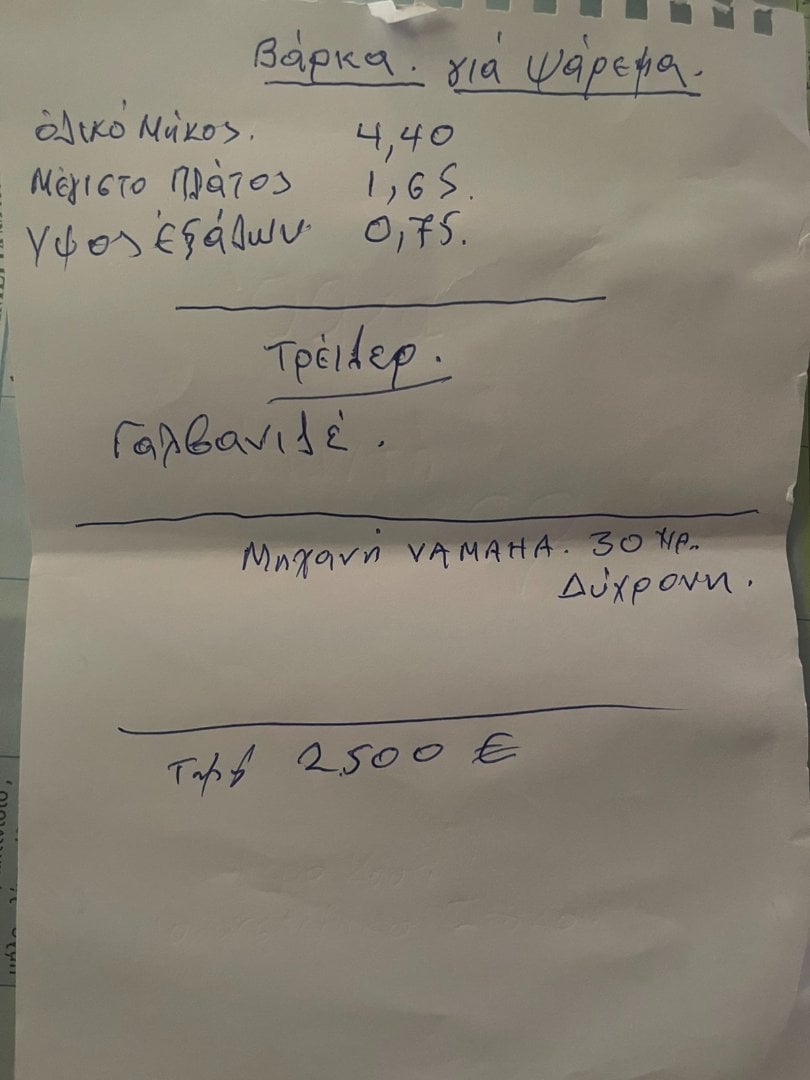 Βάρκα. γιά Ψάρεμα.
ὁλικό Μήκος. 4,40
Μέγιστο Πλάτος 1,65.
Υψος ἐξάλων 0,75.
Τρέιλερ.
Γαλβανιζέ.
Μηχανή YAMAHA. 30 HP.
Δύχρονη.
2.500 €